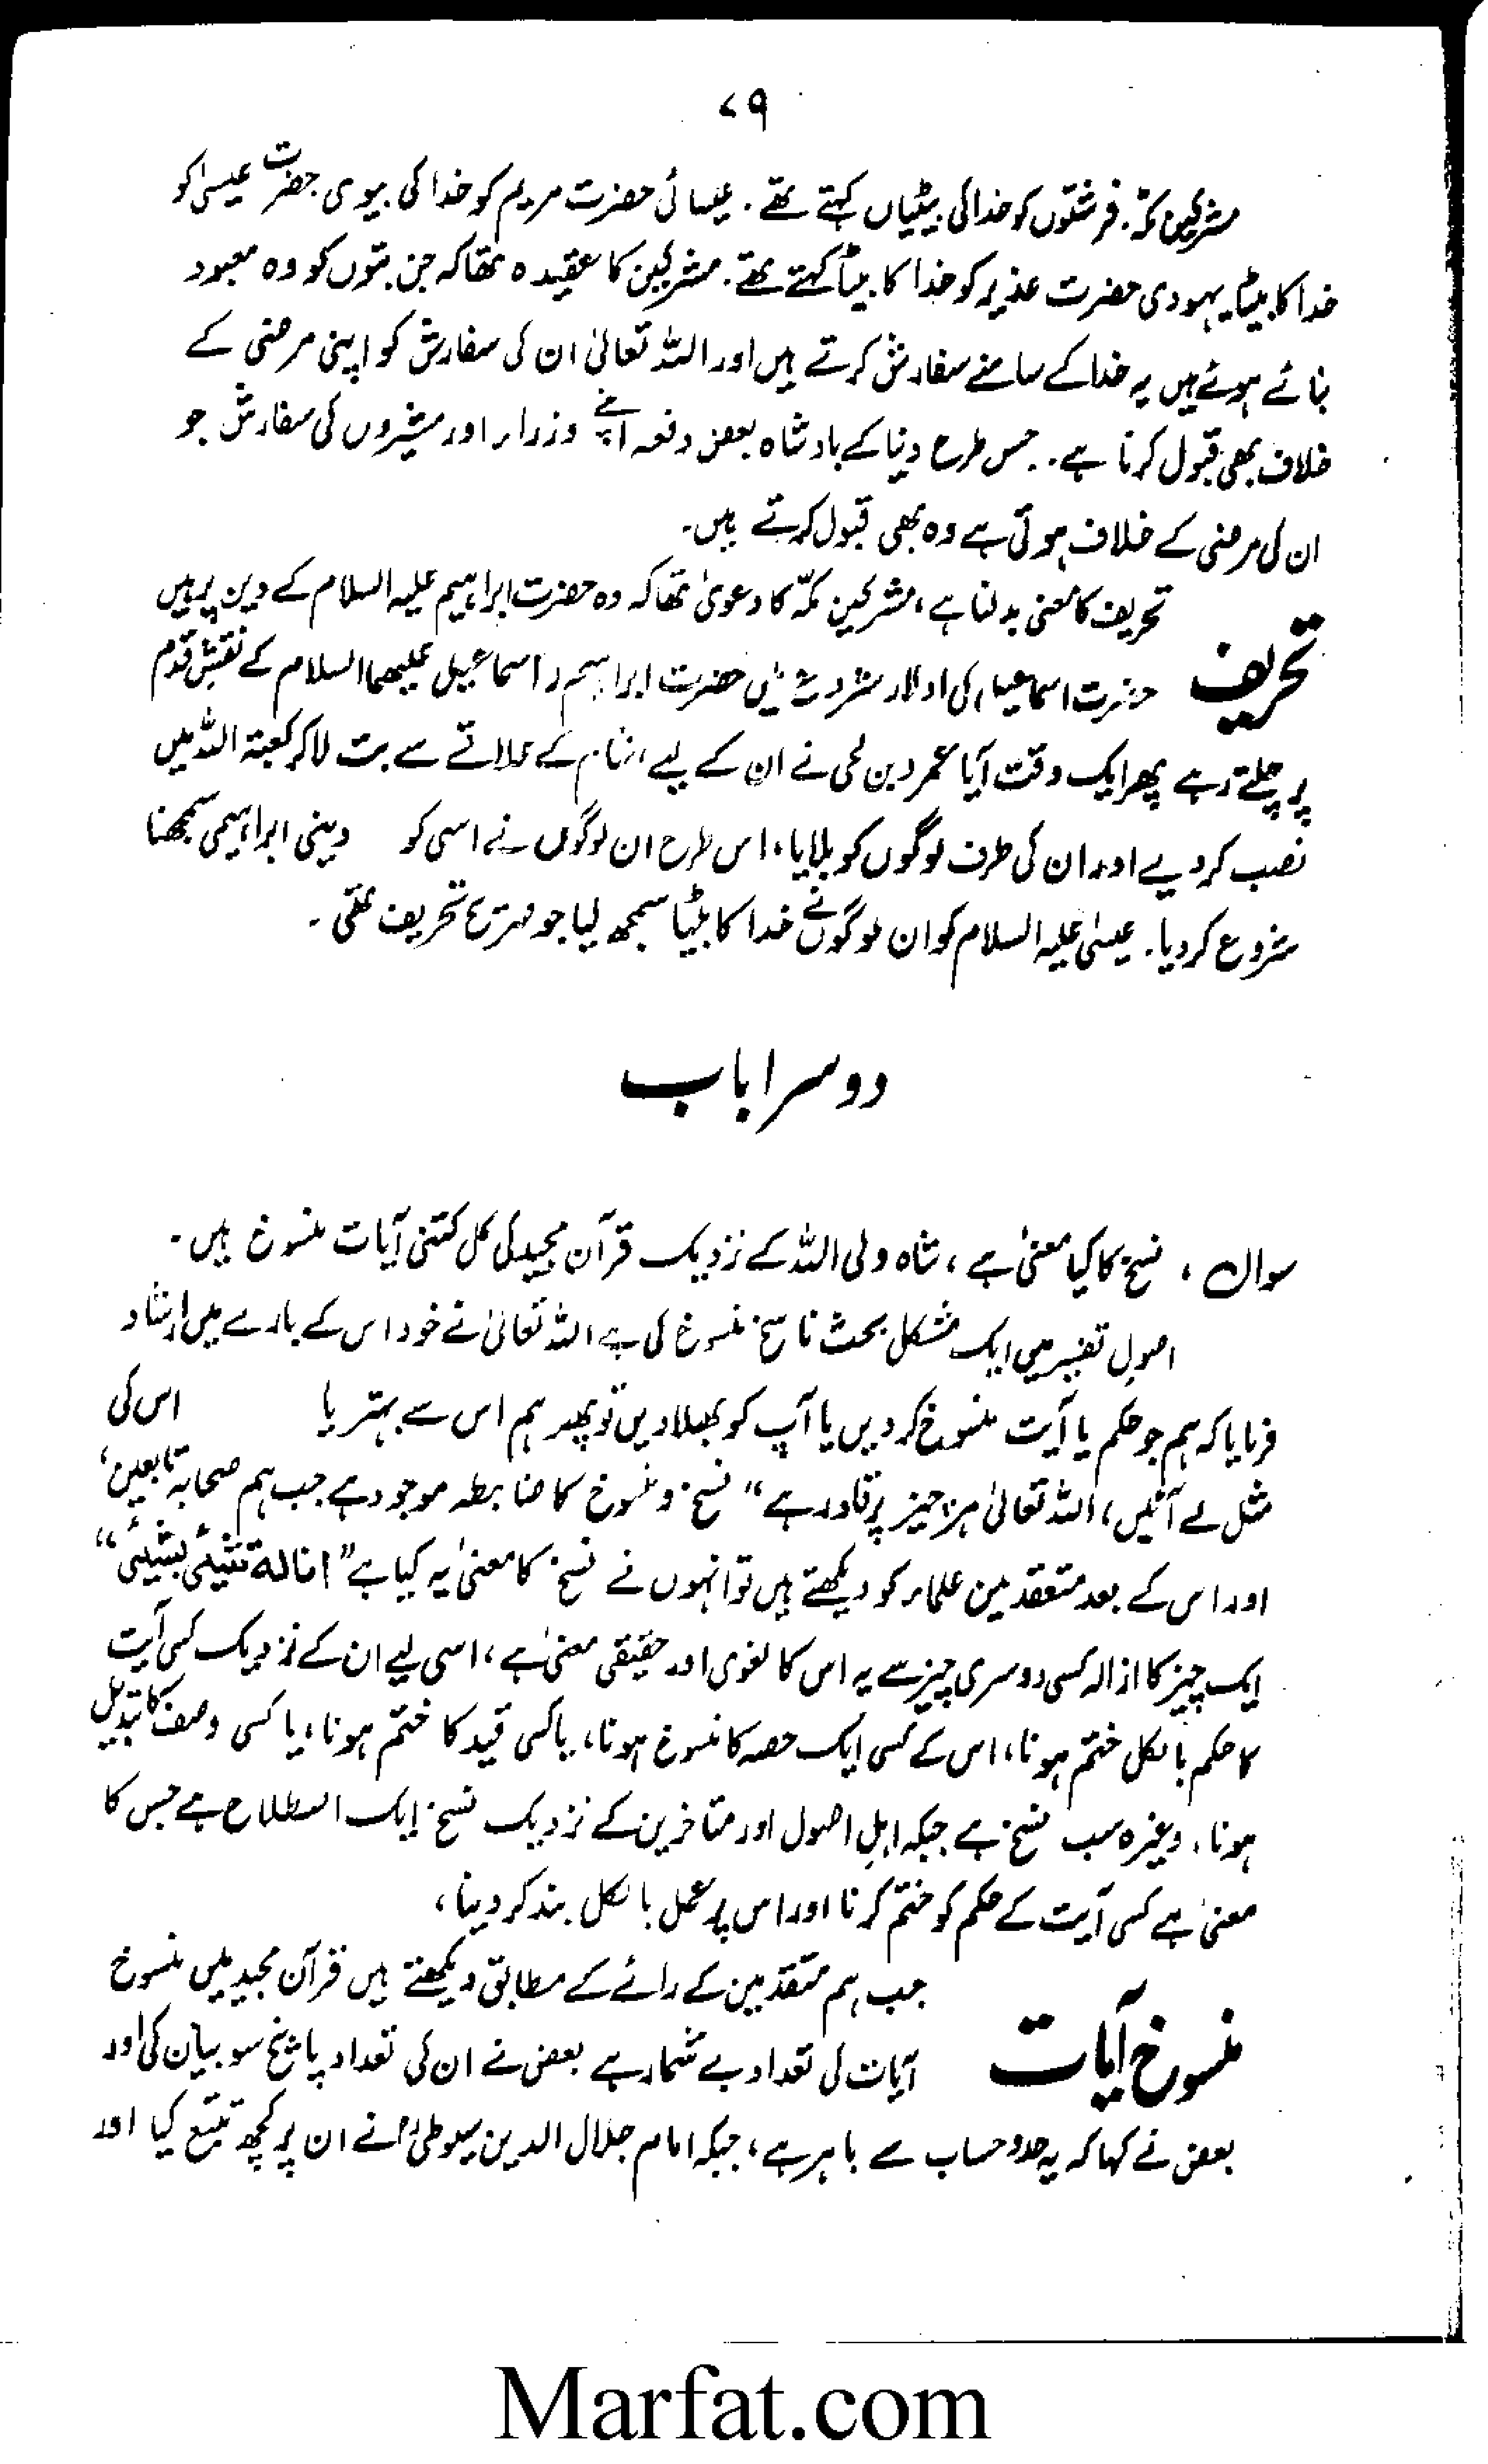 ۷۹
مشرکین مکہ، فرشتوں کو خدا کی بیٹیاں کہتے تھے۔ عیسائی حضرت مریم کو خدا کی بیوی حضرت عیسیٰ کو
خدا کا بیٹا یہودی حضرت عذیر کو خدا کا بیٹا کہتے تھے۔ مشرکین کا عقیدہ تھا کہ جن بتوں کو وہ معبود
بنائے ہوئے ہیں یہ خدا کے سامنے سفارش کرتے ہیں اور اللہ تعالیٰ ان کی سفارش کو اپنی مرضی کے
خلاف بھی قبول کرتا ہے۔ جس طرح دنیا کے بادشاہ بعض دفعہ اپنے وزراء اور مشیروں کی سفارش جو
ان کی مرضی کے خلاف ہوتی ہے وہ بھی قبول کرتے ہیں۔
تحریف کا معنی بدلنا ہے، مشرکین مکّہ کا دعویٰ تھا کہ وہ حضرت ابراہیم علیہ السلام کے دین پر ہیں
تحریف حضرت اسماعیل کی اولاد شروع میں حضرت ابراہیم و اسماعیل علیھما السلام کے نقش قدم
پر چلتے رہے پھر ایک وقت آیا عمرو بن لحی نے ان کے لیے شام کے علاقے سے بت لا کر کعبۃ اللہ میں
نصب کر دیے اور ان کی طرف لوگوں کو بلایا، اس طرح ان لوگوں نے اسی کو دینی ابراہیمی سمجھنا
شروع کر دیا۔ عیسیٰ علیہ السلام کو ان لوگوں نے خدا کا بیٹا سمجھ لیا جو صریح تحریف تھی۔
دوسرا باب
سوال، نسخ کا کیا معنیٰ ہے، شاہ ولی اللہ کے نزدیک قرآن مجید کی کل کتنی آیات منسوخ ہیں۔
اصولِ تفسیر میں ایک مشکل بحث ناسخ منسوخ کی ہے اللہ تعالیٰ نے خود اس کے بارے میں ارشاد
فرمایا کہ ہم جو حکم یا آیت منسوخ کر دیں یا آپ کو بھلا دیں تو پھر ہم اس سے بہتر یا اس کی
مثل لے آئیں، اللہ تعالیٰ ہر چیز پر قادر ہے“ نسخ و منسوخ کا ضابطہ موجود ہے جب ہم صحابہ تابعین،
اور اس کے بعد متقدمین علماء کو دیکھتے ہیں تو انہوں نے نسخ کا معنیٰ یہ کیا ہے ”ازالۃ شیئی بشیئی“
ایک چیز کا ازالہ کسی دوسری چیز سے یہ اس کا لغوی اور حقیقی معنیٰ ہے، اسی لیے ان کے نزدیک کسی آیت
کا حکم بالکل ختم ہونا، اس کے کسی ایک حصہ کا منسوخ ہونا، یا کسی قید کا ختم ہونا، یا کسی وصف کا تبدیل
ہونا، وغیرہ سب نسخ ہے جبکہ اہلِ اصول اور متاخرین کے نزدیک نسخ ایک اصطلاح ہے جس کا
معنیٰ ہے کسی آیت کے حکم کو ختم کرنا اور اس پر عمل بالکل بند کر دینا،
جب ہم متقدمین کے رائے کے مطابق دیکھتے ہیں قرآن مجید میں منسوخ
منسوخ آیات آیات کی تعداد بے شمار ہے بعض نے ان کی تعداد پانچ سو بیان کی اور
بعض نے کہا کہ یہ حد و حساب سے باہر ہے، جبکہ امام جلال الدین سیوطیؒ نے ان پر کچھ تتبع کیا اور
Marfat.com